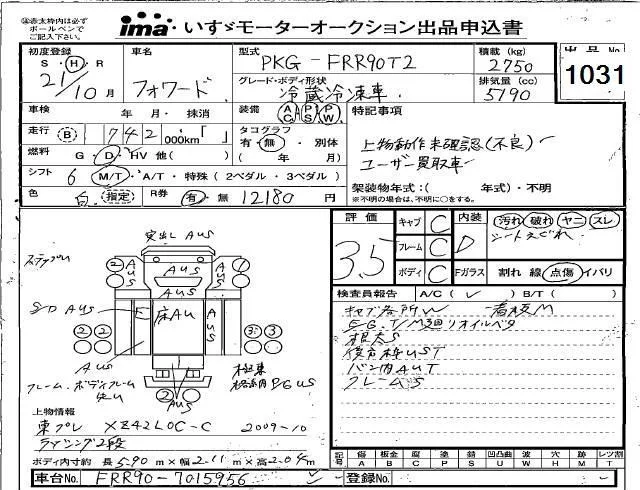 ※赤太枠内は必ず
ボールペンで
ご記入下さい。
ima いすゞモーターオークション出品申込書
初度登録 車名 型式 PKG-FRR90T2 積載(kg) 2750 出品No 1031
S・H・R 21/10月 フォワード グレード・ボディ形状 冷蔵冷凍車 排気量(cc) 5190
車検 年・月・抹消 装備 AC PS PW 特記事項
走行 B 742 000km「 」 タコグラフ 有・無・別体 ( 年 月) 上物動作未確認(不良)
燃料 G・D・HV 他( ) ユーザー買取車
シフト 6 M/T・A/T・特殊(2ペダル・3ペダル)
色 白 指定 R券 有・無 12180円 架装物年式:( 年式)・不明
※不明の場合は、不明に○をする。
評価 3.5 キャブ C 内装 D 汚れ 破れ ヤニ スレ
フレーム C シートえぐれ
ボディ C Fガラス 割れ 線 点傷 イバリ
検査員報告 A/C( ✓ )・B/T( )
キャブ各所W
EG.T/M廻りオイルベタ
バン内AUT
フレームS
突出し AUS
ステップ
S/D AUS
E
床AU
AUS
AUS
2
1
2 2
3 3
2
AUS
フレーム、ボディフレーム
上物情報
東プレ XZ42LOC-C 2009-10
ボディ内寸約 長5.90m×幅2.11m×高2.04m
記号 傷A 板金B 腐C 塗P 錆S 凹凸曲U 波W 穴H 跡M レツ割T
車台No. FRR90-7015956 登録No.